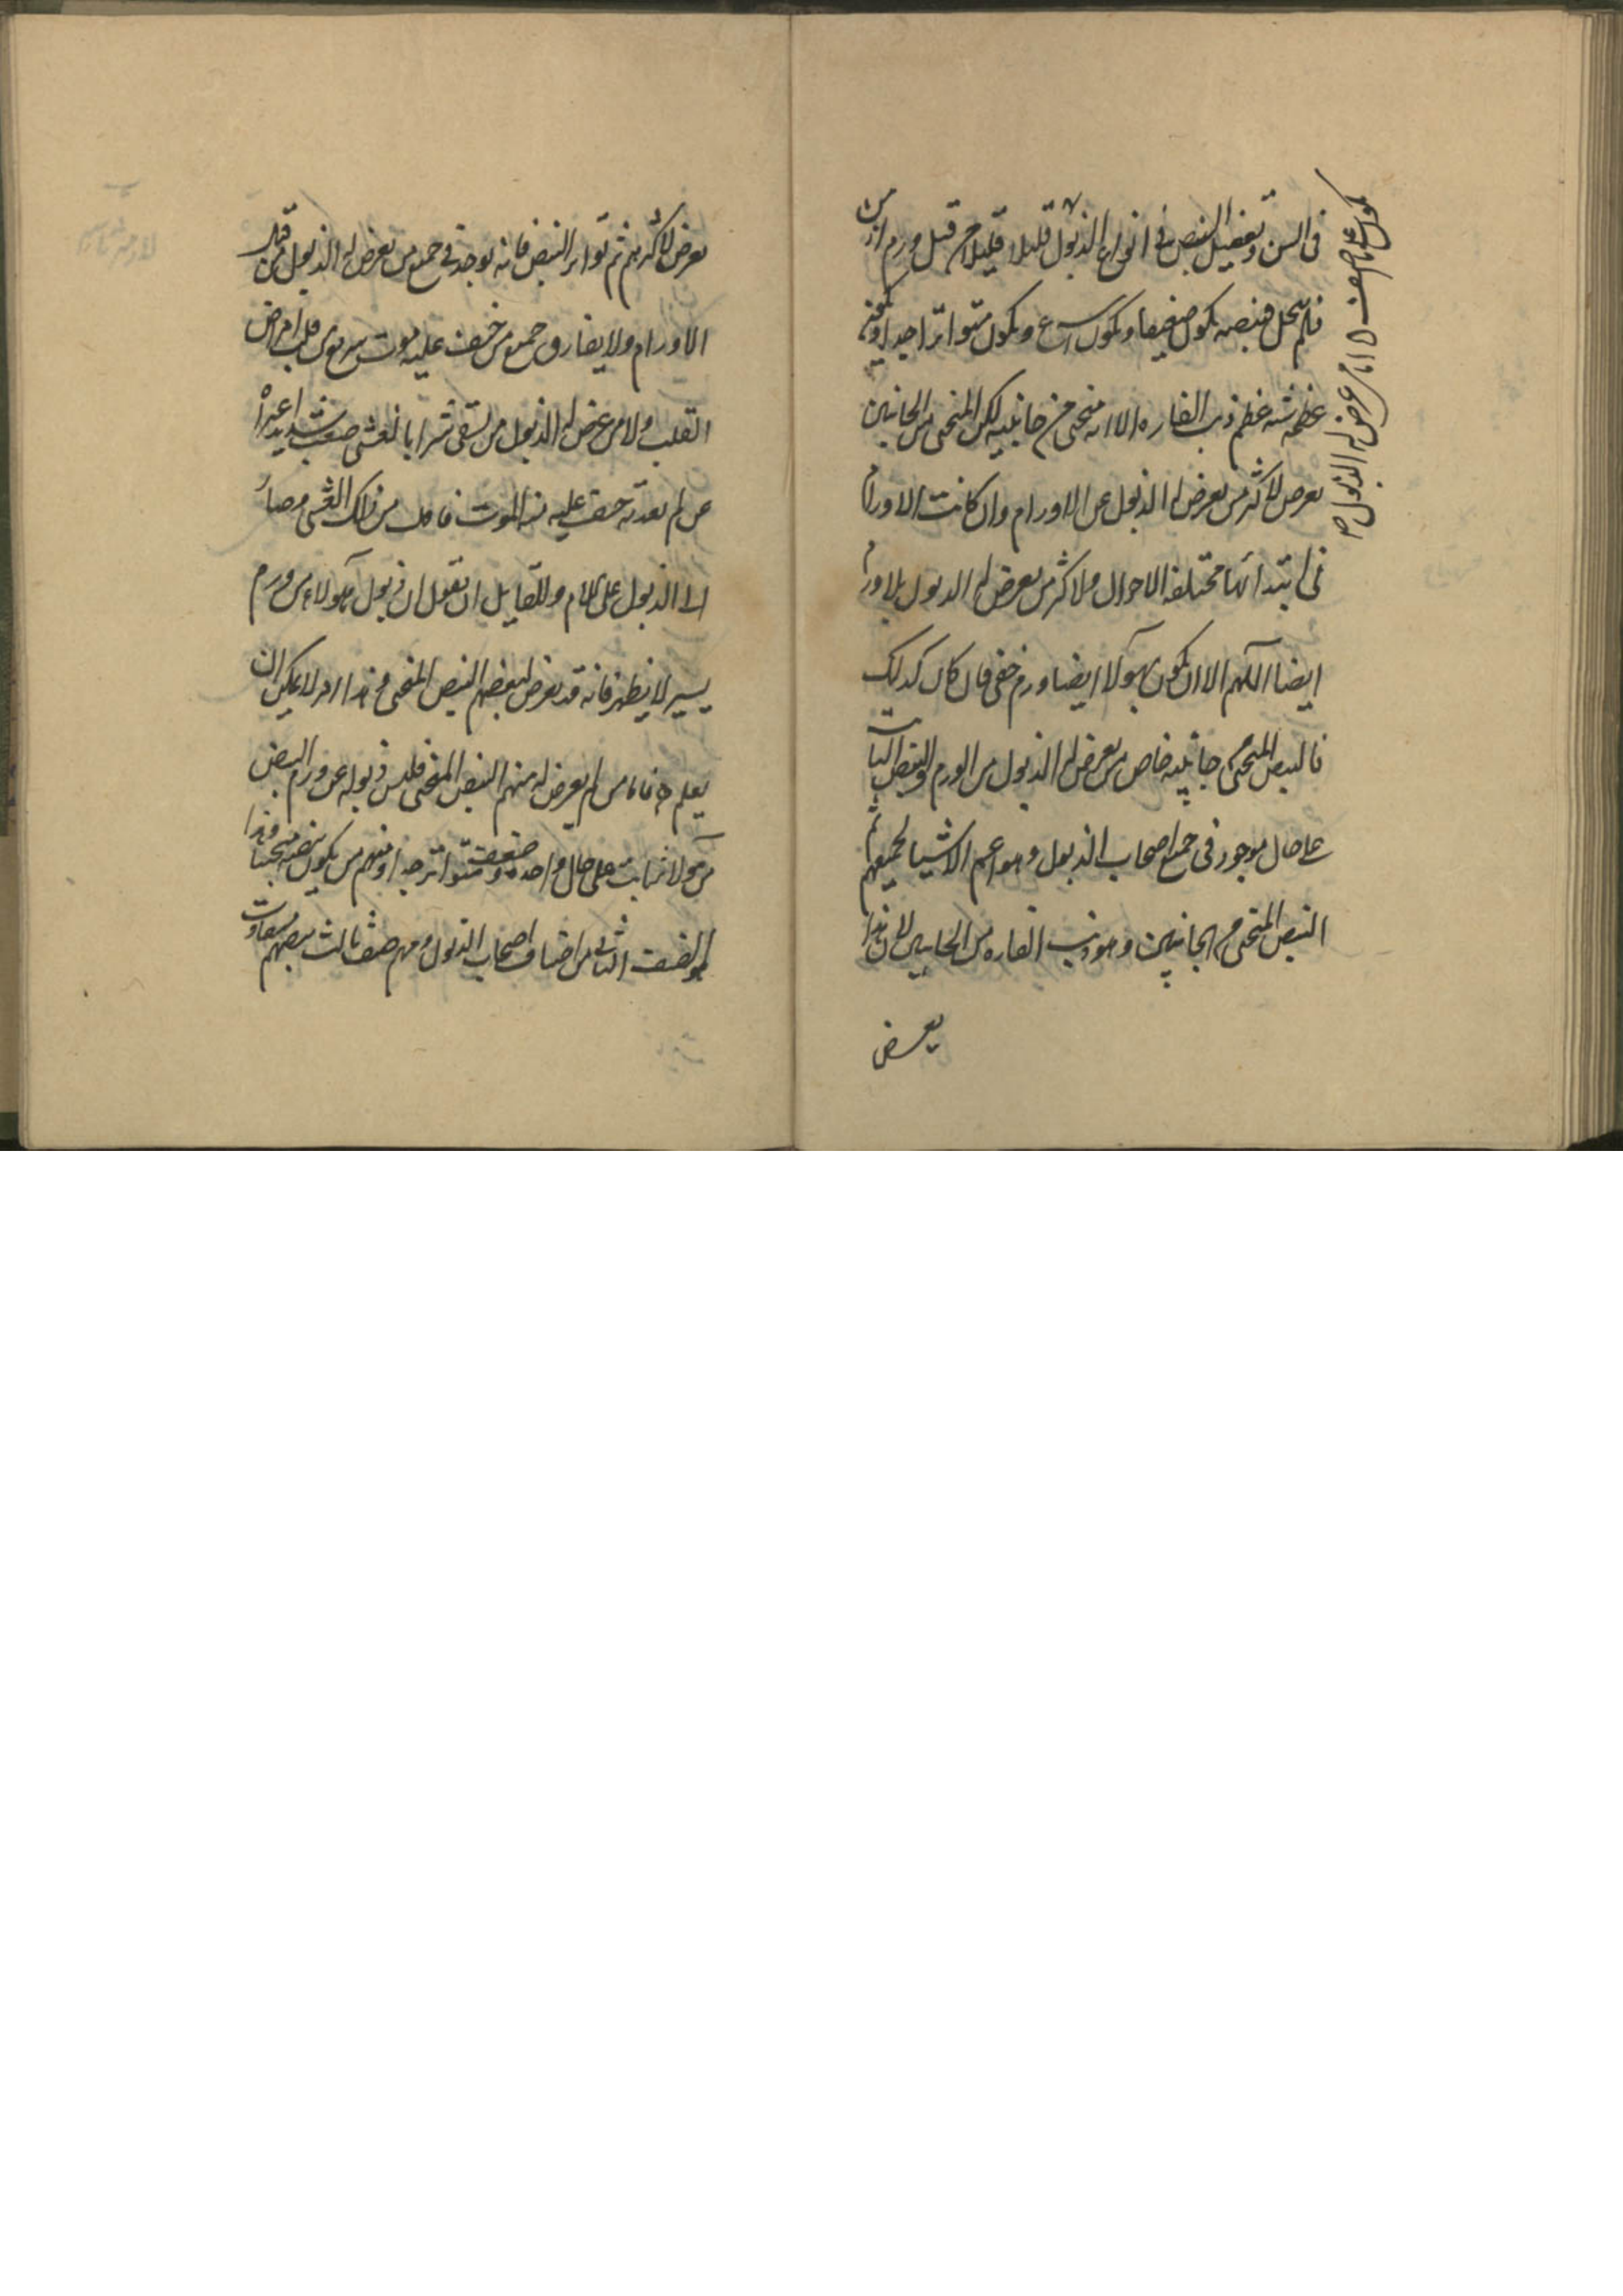 فى السن وتفصيل النبض فى انواع الذبول قليلا قليلا من قبل ورم ازمن
فلم يتحلل فنبضه يكون ضعيفا ويكون اسرع ويكون متواترا جدا
عظمه شبه عظم ذنب الفاره الا انه منحنى من جانبيه لكن المنحنى من الجانبين
يعرض لاكثر من يعرض له الذبول عن الاورام وان كانت الاورام
فى ابتدائها مختلفة الاحوال ولاكثر من يعرض له الذبول بلا ورم
ايضا اللهم الا ان يكون بهولا ايضا ورم خفى فان كان كذلك
فالنبض المنحنى جانبيه خاص بمن يعرض له الذبول من الورم والنبض الثابت
على حال موجود فى جميع اصحاب الذبول وهو اعم الاشيا لجميعهم ثم
النبض المنحنى من الجانبين وهو ذنب الفاره من الجانبين لان هذا
يعرض
يكون على ما اصف ۵ اما من عرض له الذبول صح
يعرض لاكثرهم ثم تواتر النبض فانه يوجد فى جميع من يعرض له الذبول من قبل
الاورام ولا يفارق جميع من خيف عليه موت سريع من قبل امراض
القلب ولا من عرض له الذبول من يسقى شرابا لغشى صعب شديد
من لم يغذ به خيف عليه الموت فافلت من ذلك الغشى وصار
الى الذبول على الايام وللقايل ان يقول ان ذبول هولاء من ورم
يسير لا يظهر فانه قد يعرض لبعضهم النبض المنحنى وهذا امر لا يمكن ان
يعلم فاما من لم يعرض له منهم النبض المنحنى فليس ذبوله عن ورم النبض
من هولا ثابت على حال واحده وضعيف متواتر جدا ومنهم من يكون نبضه منحنيا وهذا
هو الصنف الثانى من اصناف اصحاب الذبول ومنهم صنف ثالث نبضهم